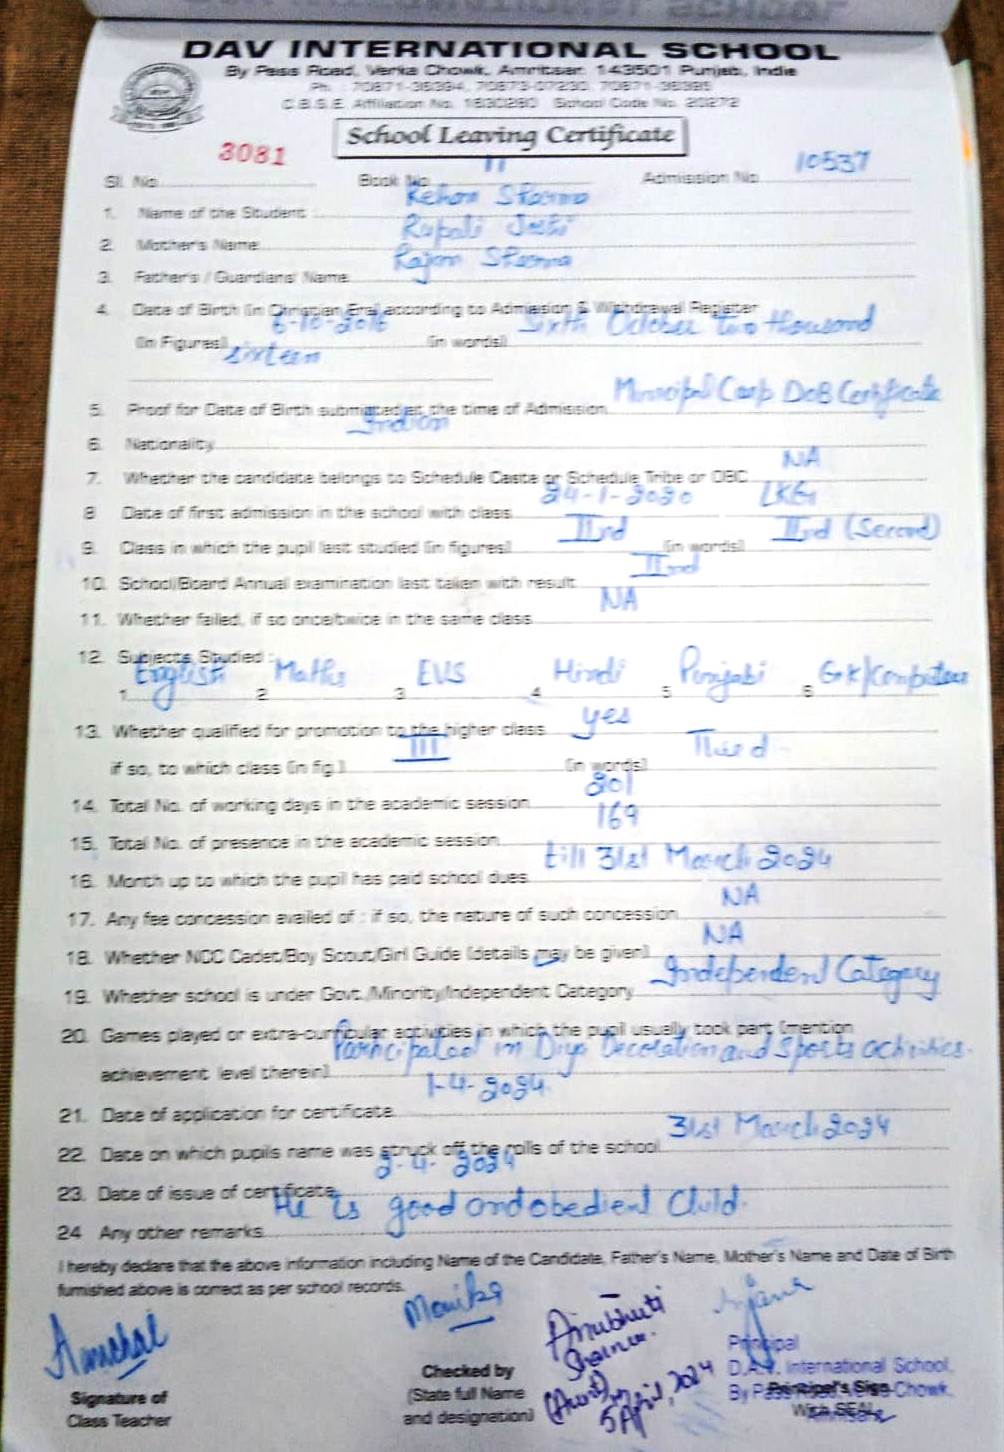 DAV INTERNATIONAL SCHOOL
By Pass Road, Verka Chowk, Amritsar. 143501 Punjab, India
C.B.S.E. Affiliation No. 1630280 School Code No. 20272
School Leaving Certificate
Sl. No. 3081 Book No. 11 Admission No. 10537
1. Name of the Student : Rehan Sharma
2. Mother's Name Rupali Joshi
3. Father's / Guardians' Name Rajan Sharma
4. Date of Birth (in Christian Era) according to Admission & Withdrawal Register
(in Figures) 6-10-2016 (in words) Sixth October two thousand
sixteen
5. Proof for Date of Birth submitted at the time of Admission Municipal Corp DoB Certificate
6. Nationality Indian
7. Whether the candidate belongs to Schedule Caste or Schedule Tribe or OBC NA
8 Date of first admission in the school with class 24-1-2020 LKG
9. Class in which the pupil last studied (in figures) IInd (in words) IInd (Second)
10. School/Board Annual examination last taken with result IInd
11. Whether failed, if so once/twice in the same class NA
12. Subjects Studied :
1. English 2 Maths 3 EVS 4 Hindi 5 Punjabi 6 G.K/Computer
13. Whether qualified for promotion to the higher class yes
if so, to which class (in fig.) III (in words) Third
14. Total No. of working days in the academic session 201
15. Total No. of presence in the academic session 169
16. Month up to which the pupil has paid school dues till 31st March 2024
17. Any fee concession availed of : if so, the nature of such concession NA
18. Whether NCC Cadet/Boy Scout/Girl Guide (details may be given) NA
19. Whether school is under Govt./Minority/Independent Category Independent Category
20. Games played or extra-curricular activities in which the pupil usually took part (mention
achievement level therein) Participated in Diya Decoration and Sports activities.
21. Date of application for certificate 1-4-2024
22. Date on which pupils name was struck off the rolls of the school 31st March 2024
23. Date of issue of certificate 2-4-2024
24 Any other remarks He is good and obedient Child.
I hereby declare that the above information including Name of the Candidate, Father's Name, Mother's Name and Date of Birth
furnished above is correct as per school records.
Aanchal
Monika
Anubhuti
5 April, 2024
Principal
D.A.V. International School,
By Pass Chowk,
Signature of
Class Teacher
Checked by
(State full Name
and designation)
Principal's Sign
With SEAL